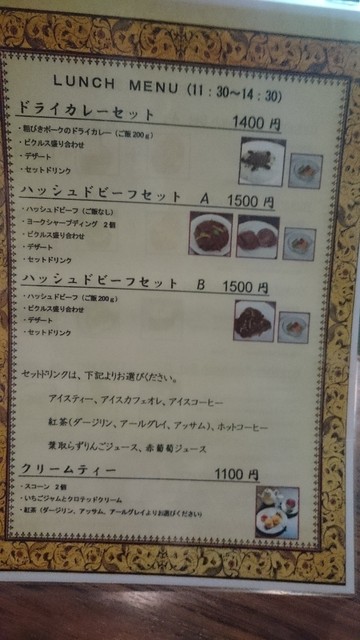 LUNCH MENU (11:30～14:30)
ドライカレーセット 1400円
・粗びきポークのドライカレー(ご飯200g)
・ピクルス盛り合わせ
・デザート
・セットドリンク
ハッシュドビーフセット A 1500円
・ハッシュドビーフ(ご飯なし)
・ヨークシャープディング 2個
・ピクルス盛り合わせ
・デザート
・セットドリンク
ハッシュドビーフセット B 1500円
・ハッシュドビーフ(ご飯200g)
・ピクルス盛り合わせ
・デザート
・セットドリンク
セットドリンクは、下記よりお選びください。
アイスティー、アイスカフェオレ、アイスコーヒー
紅茶(ダージリン、アールグレイ、アッサム)、ホットコーヒー
葉取らずりんごジュース、赤葡萄ジュース
クリームティー 1100円
・スコーン 2個
・いちごジャムとクロテッドクリーム
・紅茶(ダージリン、アッサム、アールグレイよりお選びください)